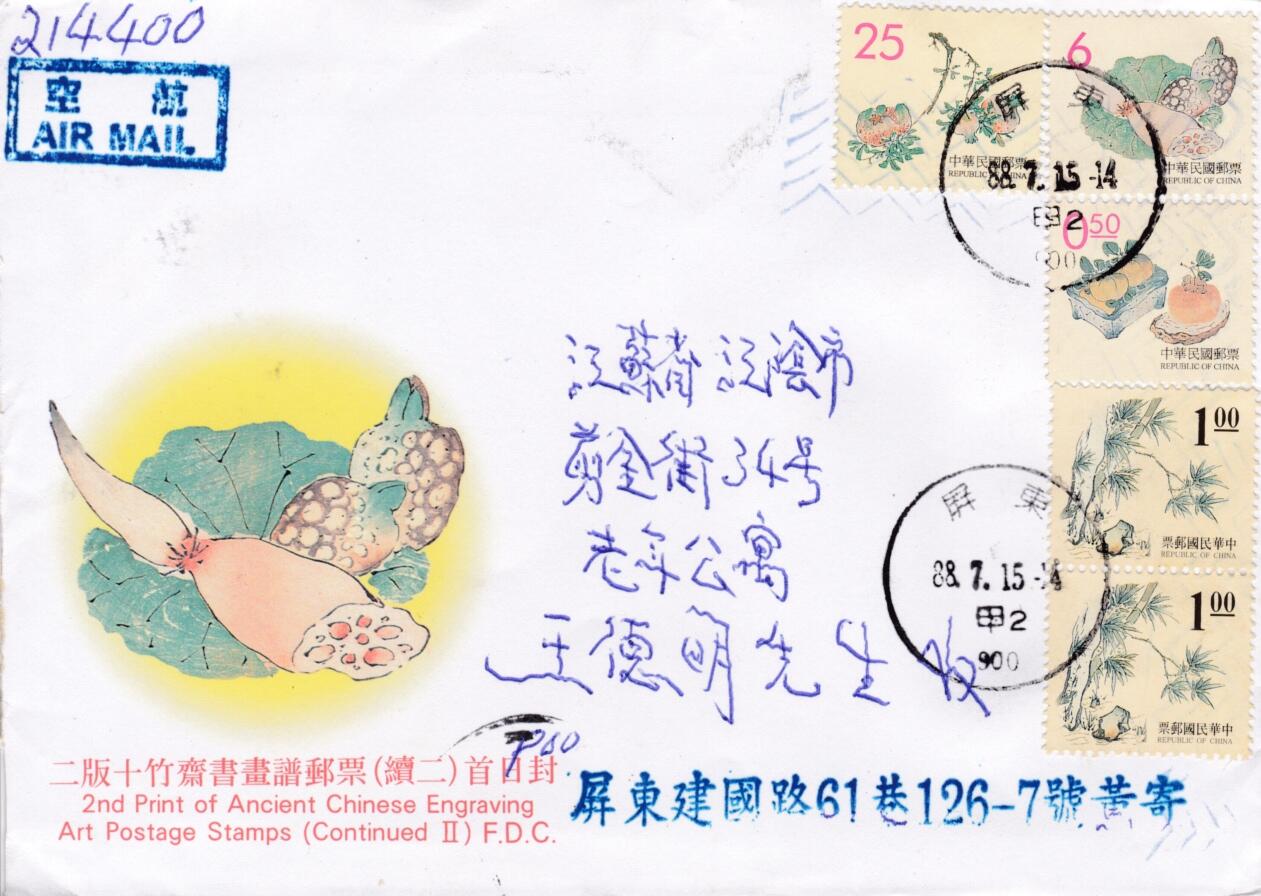 214400
空航
AIR MAIL
25
中華民國郵票
REPUBLIC OF CHINA
6
中華民國郵票
REPUBLIC OF CHINA
屏東
88.7.15-14
甲2
900
0.50
中華民國郵票
REPUBLIC OF CHINA
1.00
票郵國民華中
REPUBLIC OF CHINA
1.00
票郵國民華中
REPUBLIC OF CHINA
江蘇省 江陰市
剪金街34号
老年公寓
王德明先生收
屏東
88.7.15-14
甲2
900
二版十竹齋書畫譜郵票(續二)首日封
2nd Print of Ancient Chinese Engraving
Art Postage Stamps (Continued II) F.D.C.
屏東建國路61巷126-7號黃寄